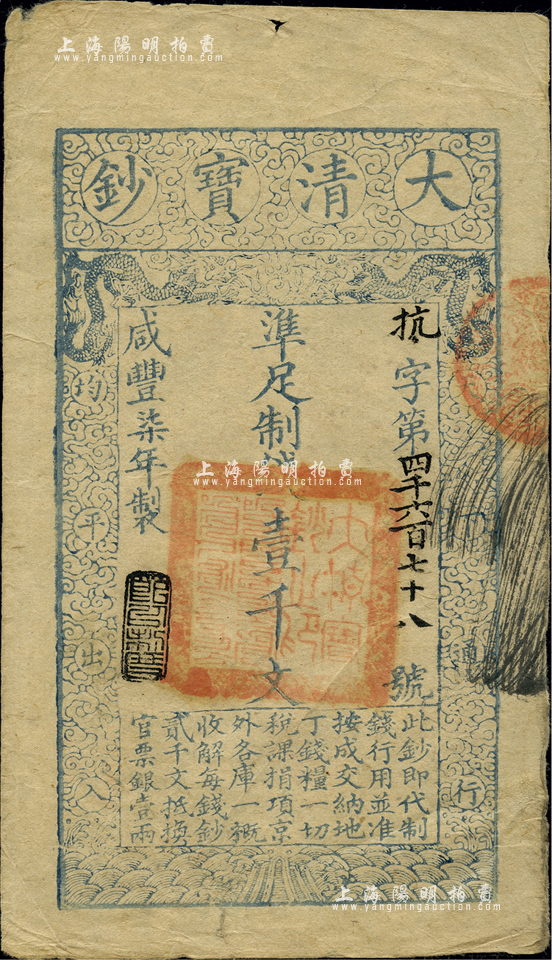 上海陽明拍賣
www.yangmingauction.com
大清寶鈔
抗字第四千六百七十八號
準足制錢壹千文
咸豐柒年製
天下通行
均平出入
此鈔即代制
錢行用並准
按成交納地
丁錢糧一切
稅課捐項京
外各庫一概
收解每錢鈔
貳千文抵換
官票銀壹兩
上海陽明拍賣
www.yangmingauction.com
上海陽明拍賣
www.yangmingauction.com